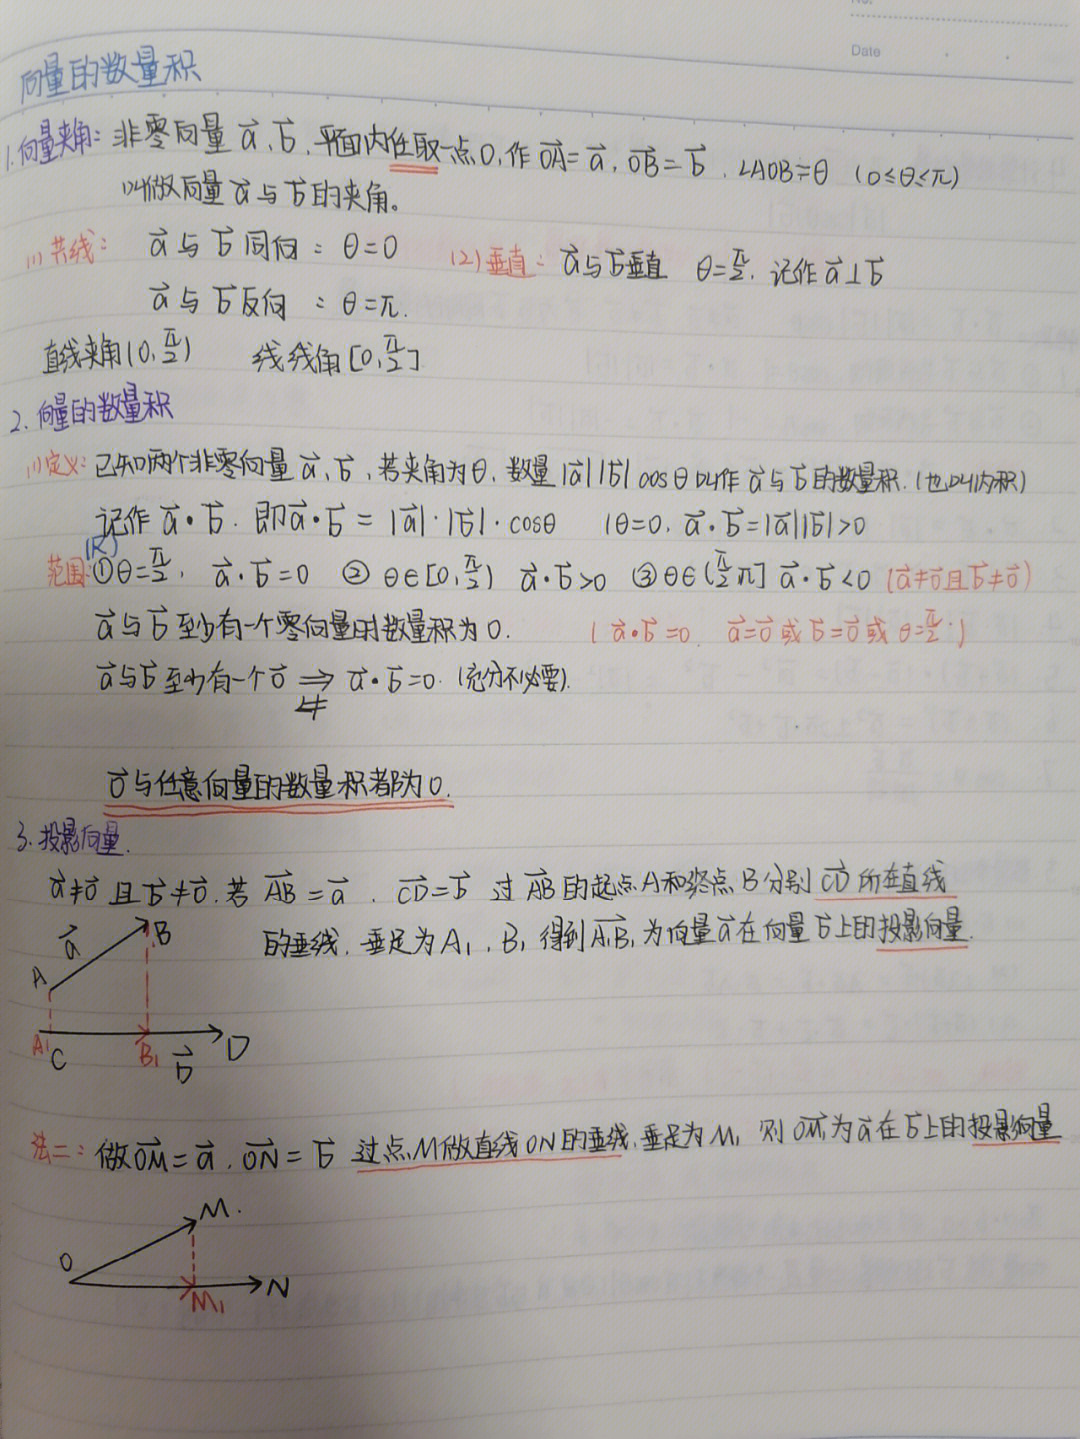 No.
Date
向量的数量积
1.向量夹角: 非零向量 a⃗, b⃗, 平面内任取一点O, 作 OA⃗ = a⃗, OB⃗ = b⃗, ∠AOB=θ (0≤θ≤π)
叫做向量 a⃗ 与 b⃗ 的夹角。
(1)共线: a⃗ 与 b⃗ 同向: θ=0 (2)垂直: a⃗与b⃗垂直 θ=π/2. 记作 a⃗⊥b⃗
a⃗ 与 b⃗ 反向: θ=π.
直线夹角(0,π/2) 线线角[0,π/2]
2. 向量的数量积
(1)定义: 已知两个非零向量 a⃗, b⃗, 若夹角为θ, 数量 |a⃗||b⃗| cosθ 叫作 a⃗与b⃗的数量积.(也叫内积)
记作 a⃗·b⃗. 即a⃗·b⃗ = |a⃗|·|b⃗|·cosθ (θ=0, a⃗·b⃗=|a⃗||b⃗|>0
(R)
范围: ①θ=π/2, a⃗·b⃗=0 ② θ∈[0,π/2) a⃗·b⃗>0 ③θ∈(π/2 π] a⃗·b⃗<0 (a⃗≠0⃗且b⃗≠0⃗)
a⃗与b⃗至少有一个零向量时数量积为0. (a⃗·b⃗=0 a⃗=0⃗ 或 b⃗=0⃗ 或 θ=π/2.)
a⃗与b⃗至少有一个0⃗ ⇒ a⃗·b⃗=0. (充分不必要).
⇍
0⃗与任意向量的数量积都为0.
3. 投影向量.
a⃗≠0⃗ 且 b⃗≠0⃗. 若 AB⃗ = a⃗, CD⃗ = b⃗ 过 AB⃗ 的起点A和终点B分别 CD⃗ 所在直线
的垂线, 垂足为A₁, B₁ 得到A₁B₁⃗ 为向量a⃗在向量b⃗上的投影向量.
a⃗ B
A
A₁ C B₁ b⃗ D
法二: 做OM⃗ = a⃗, ON⃗ = b⃗ 过点M做直线ON的垂线, 垂足为M₁ 则 OM₁⃗为a⃗在b⃗上的投影向量
M.
O M₁ N